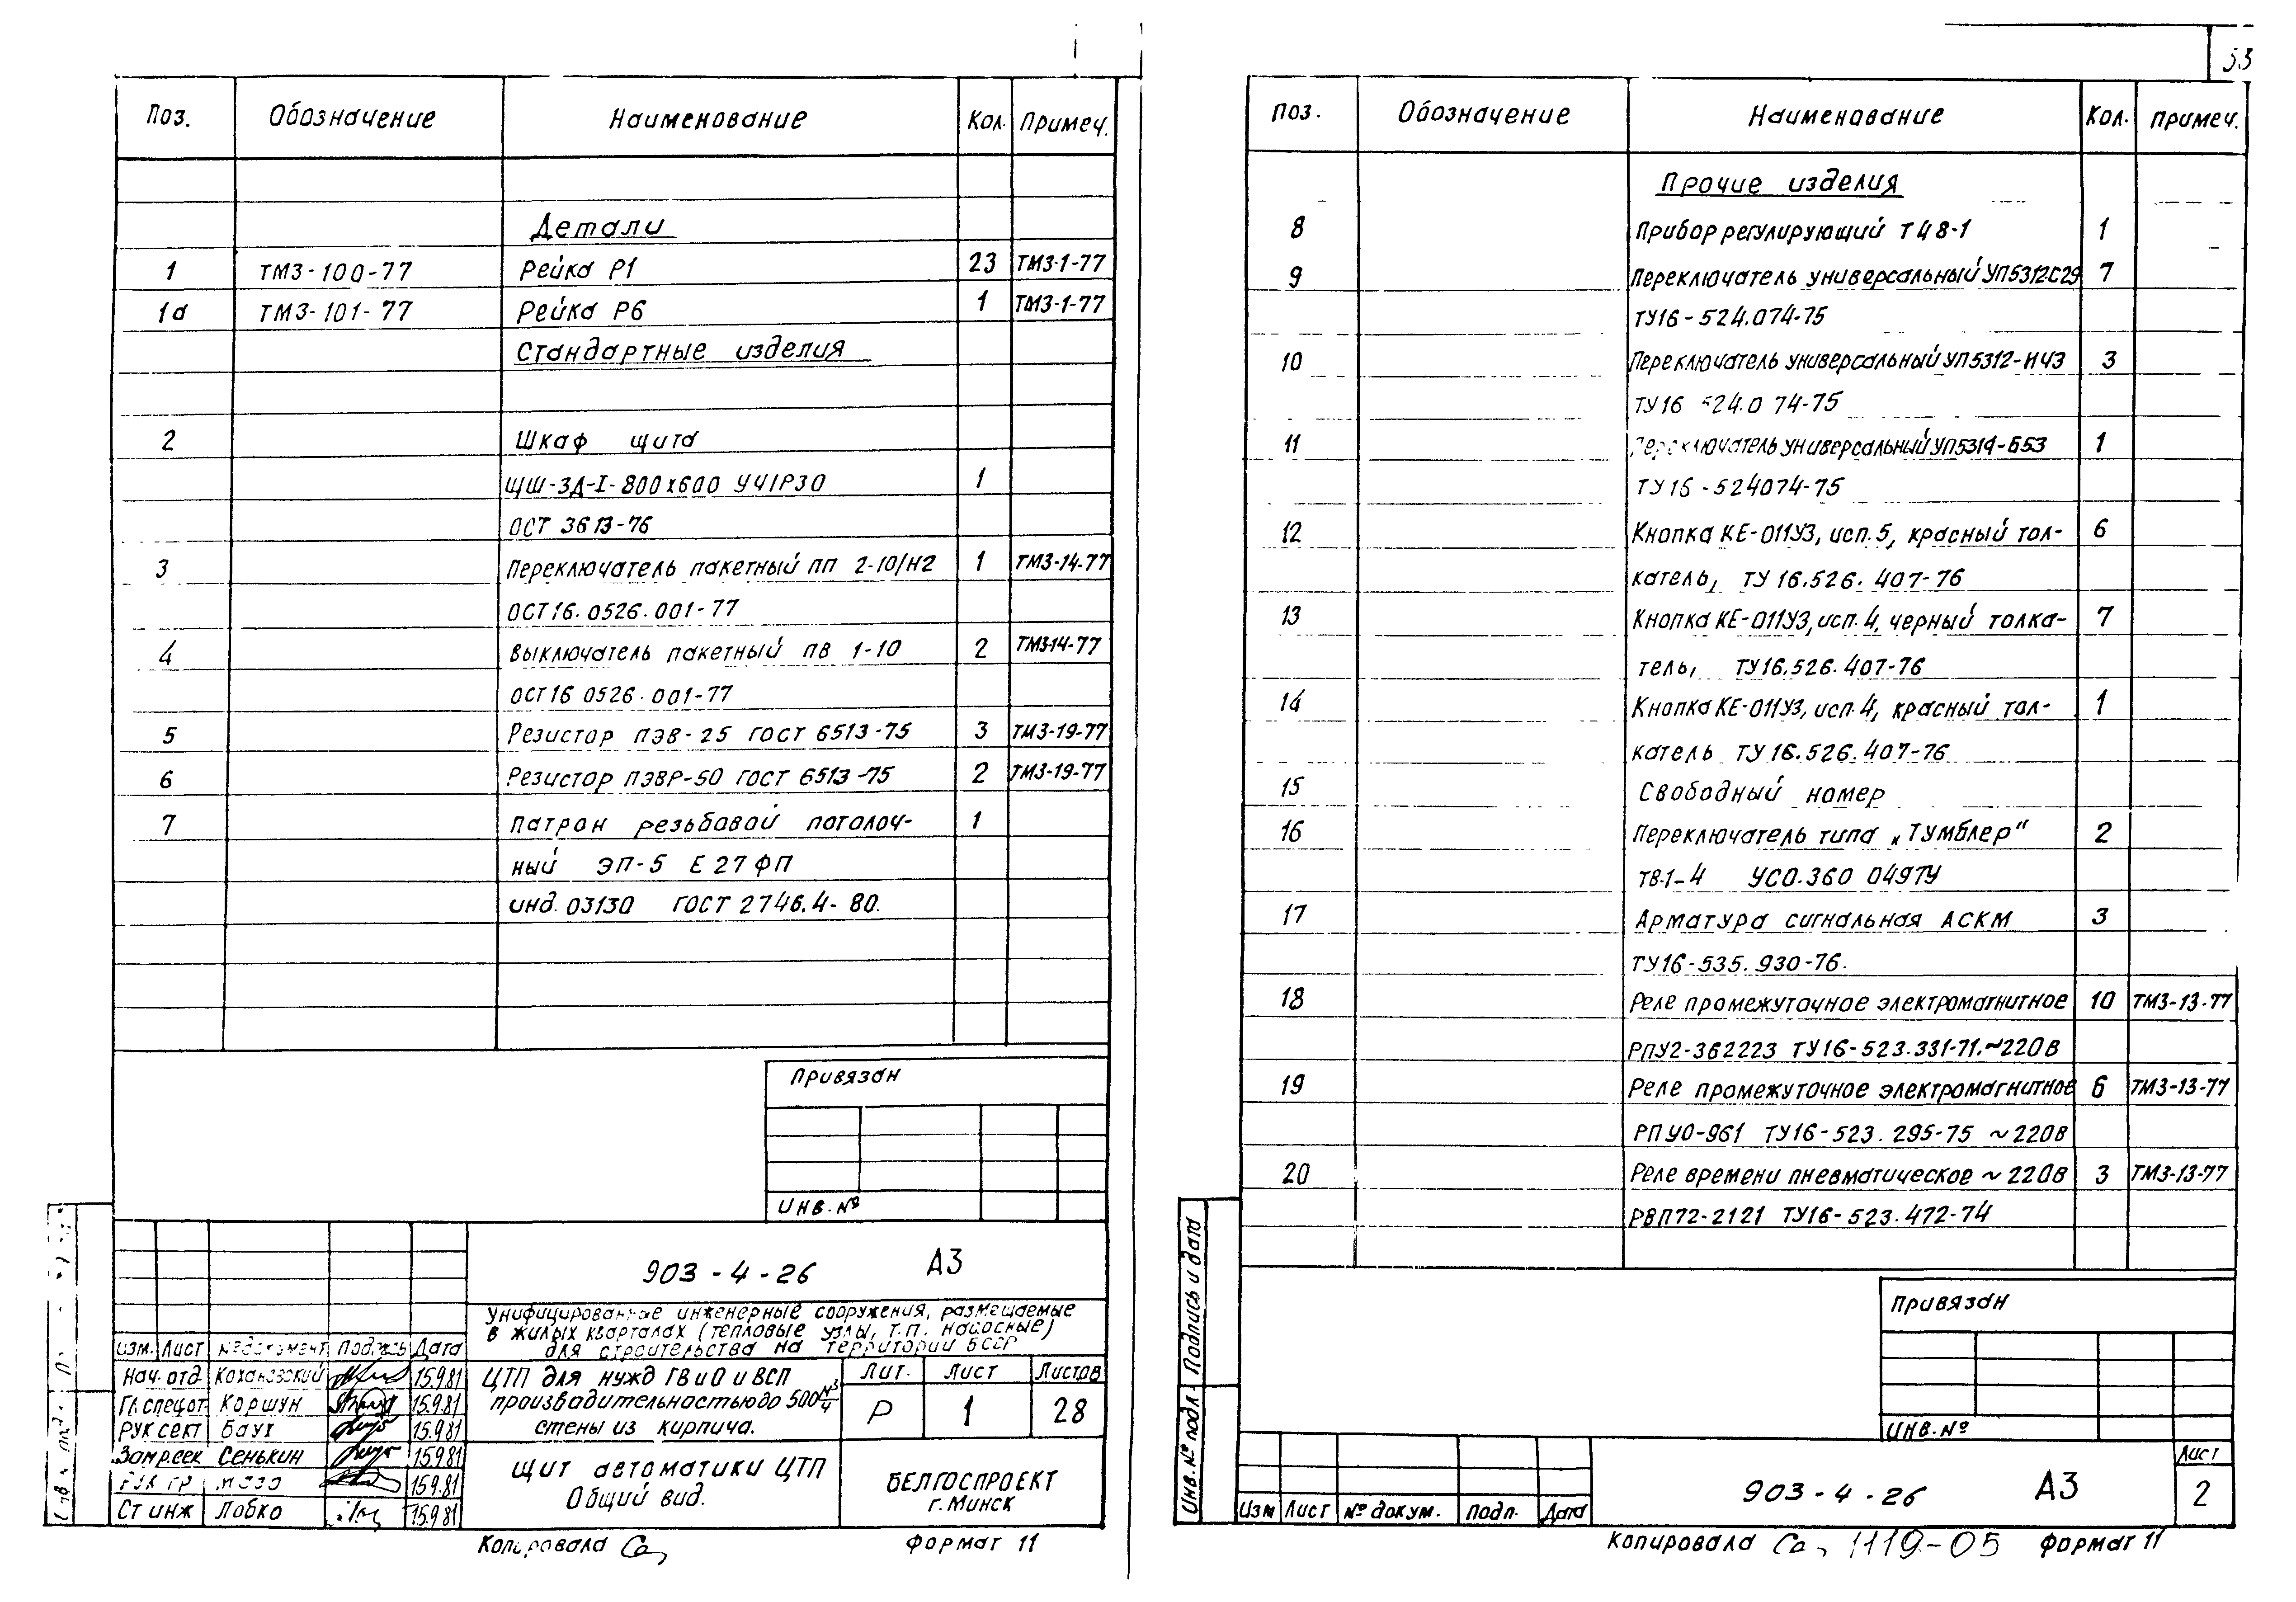 Поз. Обозначение Наименование Кол. Примеч.
Детали
1 ТМ3-100-77 Рейка Р1 23 ТМ3-1-77
1а ТМ3-101-77 Рейка Р6 1 ТМ3-1-77
Стандартные изделия
2 Шкаф щита
ЩШ-ЗД-I-800х600 УЧIР30 1
ОСТ 3613-76
3 Переключатель пакетный ПП 2-10/Н2 1 ТМ3-14-77
ОСТ16.0526.001-77
4 Выключатель пакетный ПВ 1-10 2 ТМ3-14-77
ОСТ16 0526.001-77
5 Резистор ПЭВ-25 ГОСТ 6513-75 3 ТМ3-19-77
6 Резистор ПЭВР-50 ГОСТ 6513-75 2 ТМ3-19-77
7 Патрон резьбовой потолоч- 1
ный ЭП-5 Е27ФП
инд. 03130 ГОСТ 2746.4-80.
Привязан
ИНВ.№
903-4-26 А3
Унифицированные инженерные сооружения, размещаемые
в жилых кварталах (тепловые узлы, т.п. насосные)
для строительства на территории БССР
изм. Лист № документ Подпись Дата
Нач.отд Кохановский 15.9.81
Гл.спецот Коршун 15.9.81
Рук сект Баух 15.9.81
Зам.р.сек Сенькин 15.9.81
Рук гр 15.9.81
Ст инж Лобко 15.9.81
ЦТП для нужд ГВ и О и ВСП
производительностью до 500 м³/ч
стены из кирпича.
Лит. Лист Листов
Р 1 28
Щит автоматики ЦТП
Общий вид.
БЕЛГОСПРОЕКТ
г. Минск
Копировала Формат 11
53
Поз. Обозначение Наименование Кол. Примеч.
Прочие изделия
8 Прибор регулирующий Т48-1 1
9 Переключатель универсальный УП5312-С29 7
ТУ16-524.074-75
10 Переключатель универсальный УП5312-Н43 3
ТУ16 524.074-75
11 Переключатель универсальный УП5314-Б53 1
ТУ16-524074-75
12 Кнопка КЕ-011У3, исп.5, красный тол- 6
катель, ТУ 16.526.407-76
13 Кнопка КЕ-011У3, исп.4, черный толка- 7
тель, ТУ16.526.407-76
14 Кнопка КЕ-011У3, исп.4, красный тол- 1
катель ТУ 16.526.407-76
15 Свободный номер
16 Переключатель типа „Тумблер" 2
ТВ-1-4 УСО.360 049ТУ
17 Арматура сигнальная АСКМ 3
ТУ16-535.930-76.
18 Реле промежуточное электромагнитное 10 ТМ3-13-77
РПУ2-362223 ТУ16-523.331-71.~220В
19 Реле промежуточное электромагнитное 6 ТМ3-13-77
РПУ0-961 ТУ16-523.295-75 ~220В
20 Реле времени пневматическое ~220В 3 ТМ3-13-77
РВП72-2121 ТУ16-523.472-74
Привязан
ИНВ.№
Инв.№ подл. Подпись и дата
Изм Лист № докум. Подп. Дата
903-4-26 А3
Лист
2
Копировала 1119-05 Формат 11